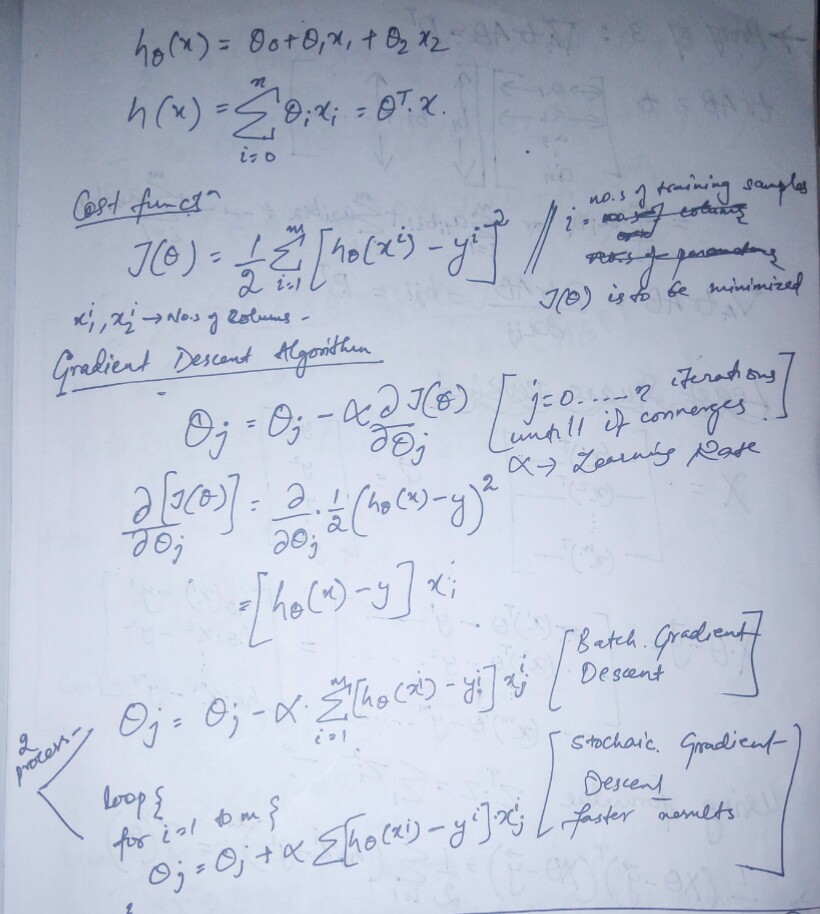 hθ(x) = θ0+θ1x1 + θ2 x2
h(x) = Σ_{i=0}^{n} θi xi = θ^T. x.
Cost funct^n
J(θ) = 1/2 Σ_{i=1}^{m} [hθ(x^i) - y^i]^2 // i = no.s of training samples
J(θ) is to be minimized
x1^i, x2^i → No.s of Colums -
Gradient Descent Algorithm
θj = θj - α ∂J(θ)/∂θj [j=0.....n iterations
untill it converges.]
α → Learning Rate
∂/∂θj [J(θ)] = ∂/∂θj . 1/2 (hθ(x) - y)^2
= [hθ(x) - y] xi
2 process -
θj = θj - α. Σ_{i=1}^{m} [hθ(x^i) - y^i] xj^i [Batch. Gradient
Descent]
loop {
for i=1 to m {
θj = θj + α Σ[hθ(x^i) - y^i].xj^i [Stochaic. Gradient
Descent
faster results]